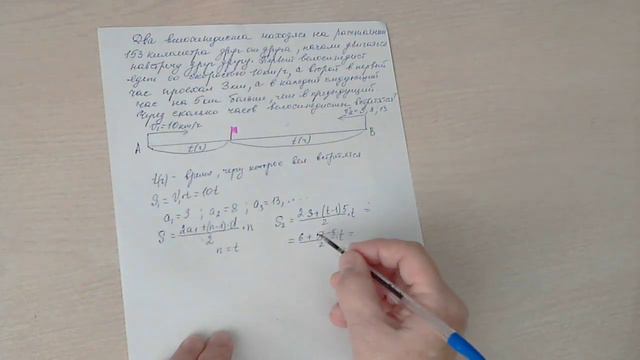 Два велосипедиста находясь на расстоянии
153 километра друг от друга, начали двигаться
навстречу друг другу. Первый велосипедист
едет со скоростью 10км/ч, а второй в первый
час проехал 3км, а в каждый следующий
час на 5км больше, чем в предыдущий
Через сколько часов велосипедисты встретятся?
V₁=10км/ч
3, 8, 13
A t(ч) t(ч) B
t(ч) - время, через которое вел. встретятся
S₁ = V₁·t = 10t
a₁=3 ; a₂=8 ; a₃=13, ....
S = (2a₁+(n-1)·d)/2 · n
n = t
S₂ = (2·3+(t-1)5)/2 · t =